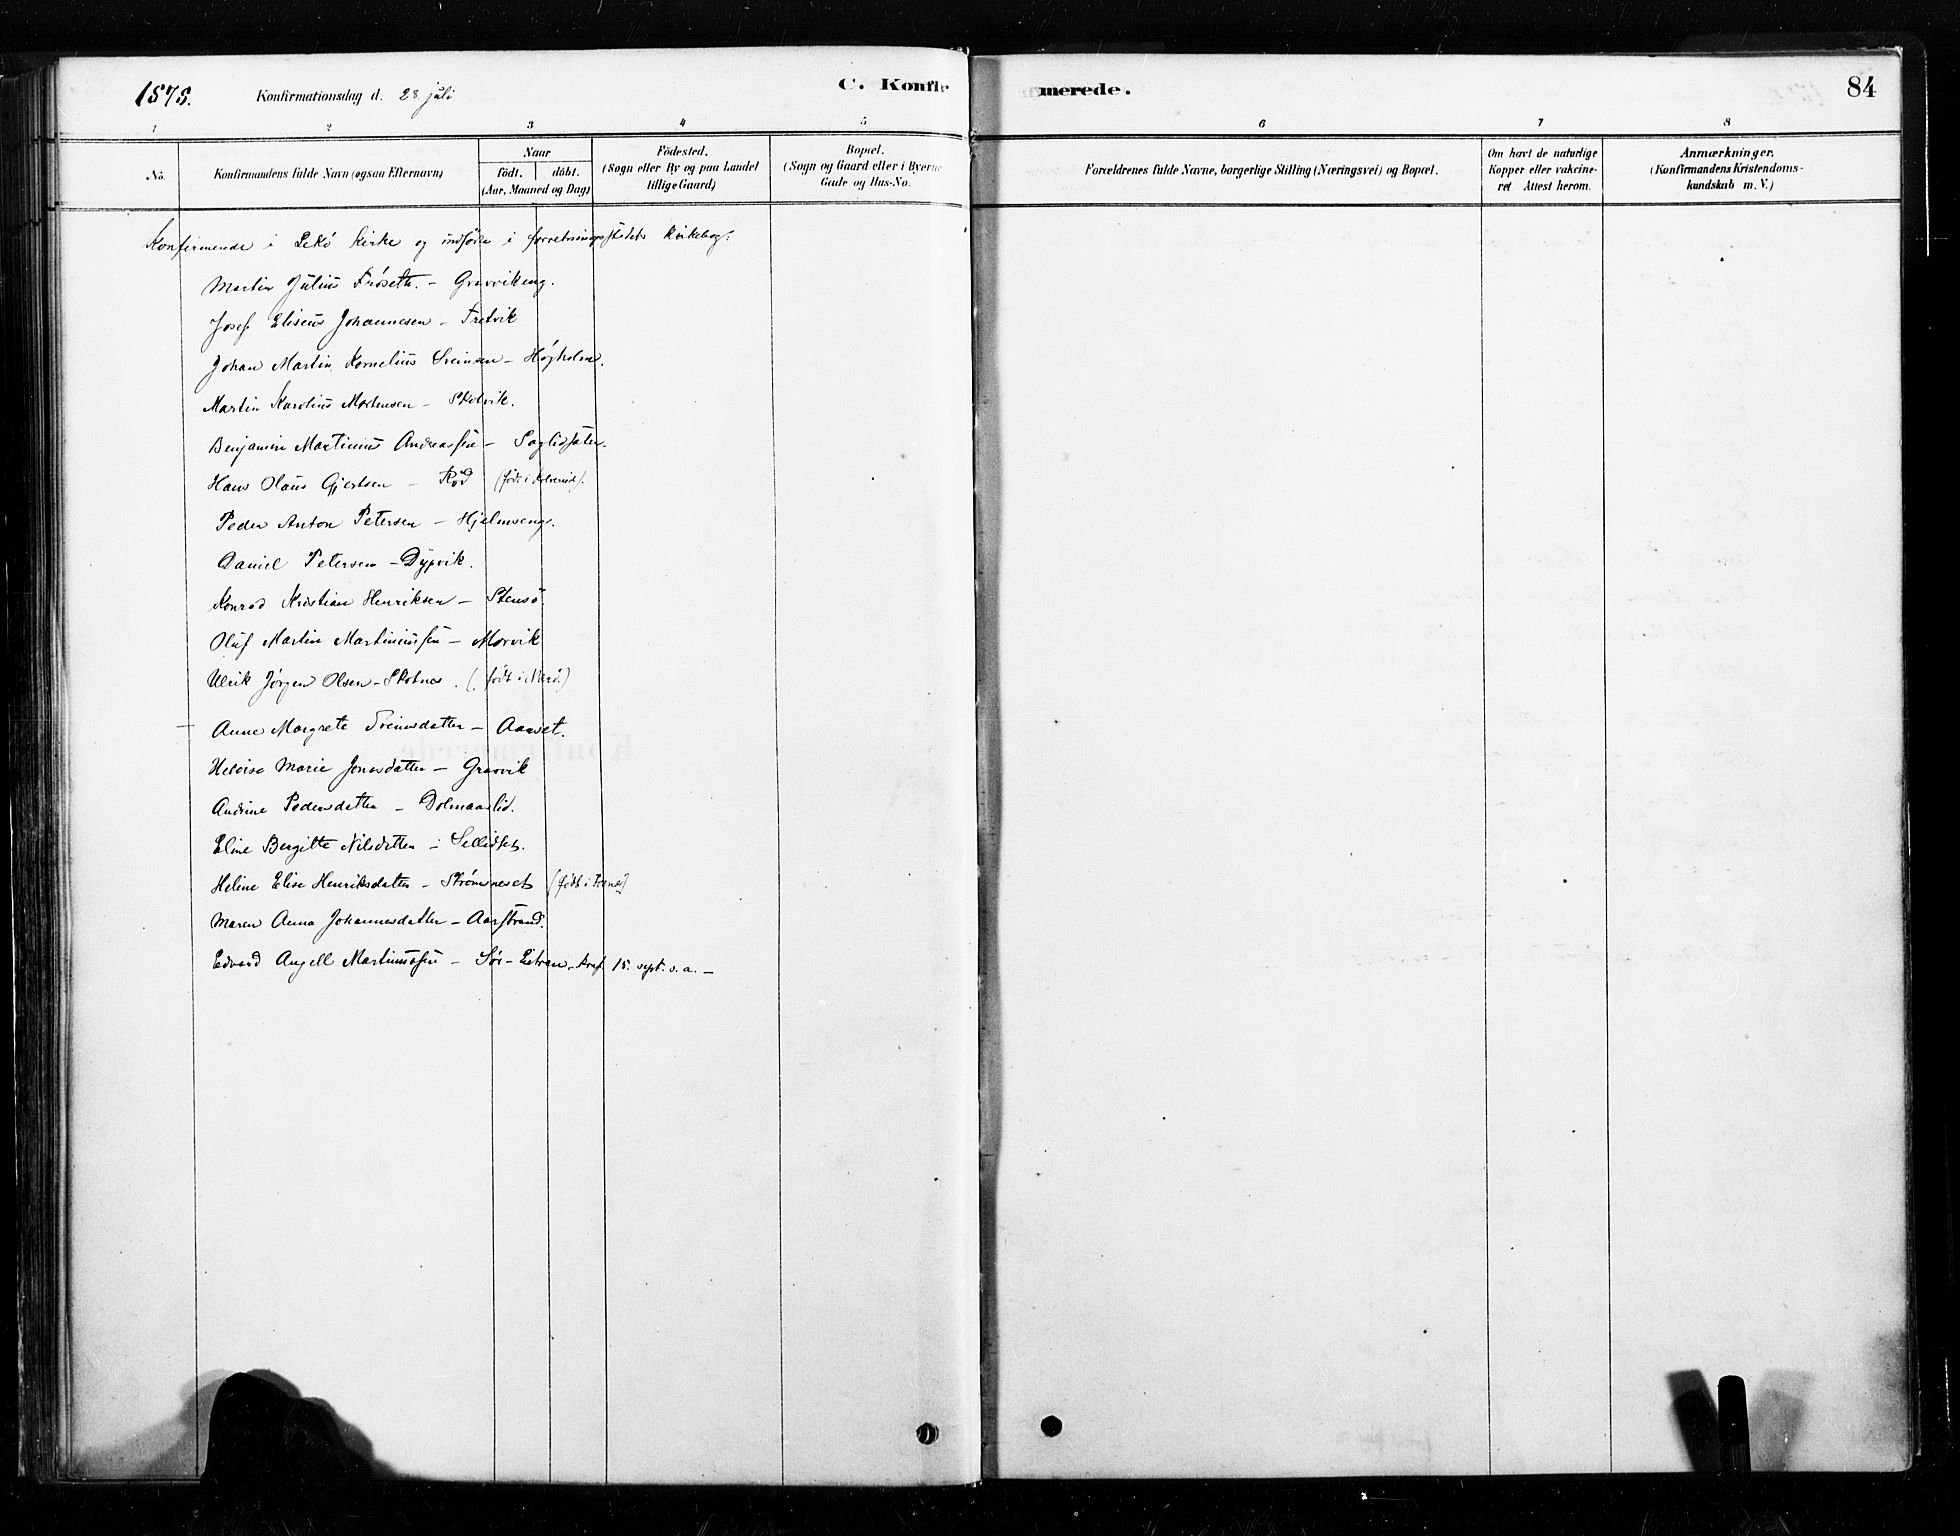 1878. Konfirmationsdag d. 28 juli
C. Konfirmerede.
84
1 2 3 4 5 6 7 8
No.
Konfirmandens fulde Navn (ogsaa Efternavn)
Naar
födt. döbt.
(Aar, Maaned og Dag)
Födested.
(Sogn eller By og paa Landet
tillige Gaard)
Bopæl.
(Sogn og Gaard eller i Byerne
Gade og Hus-No.
Forældrenes fulde Navne, borgerlige Stilling (Næringsvei) og Bopæl.
Om havt de naturlige
Kopper eller vakcine-
ret. Attest herom.
Anmærkninger.
(Konfirmandens Kristendoms-
kundskab m. V.)
Konfirmerede i Lekö kirke og indförte i forretningsstedets kirkebog:
Martin Julius Fröseth. - Gravvikeng.
Josef Eliseus Johannesen - Fretvik
Johan Martin Kornelius Sveinsen - Højholme.
Martin Karolius Mortensen - Skotvik.
Benjamin Martinius Andreassen - Saglidsæter.
Hans Olaus Gjertsen - Röd (födt i Kolvereid).
Peder Anton Petersen - Hjelmseng.
Daniel Petersen - Dypvik.
Konrad Kristian Henriksen - Stensö
Oluf Martin Martiniussen - Morvik
Ulrik Jörgen Olsen - Skotnes. (födt i Nærö.)
Anne Margrete Sveinsdatter - Aarset.
Heloise Marie Jonasdatter - Gravvik
Andrine Pedersdatter - Dolmaaslid.
Eline Bergitte Nilsdatter - Sellidset.
Heline Elise Henriksdatter - Strömneset (födt i Fosnes)
Maren Anna Johannesdatter - Aarstrand.
Edvard Angell Martinussen - Sör-Eitran, konf. 15. sept. s. a. -